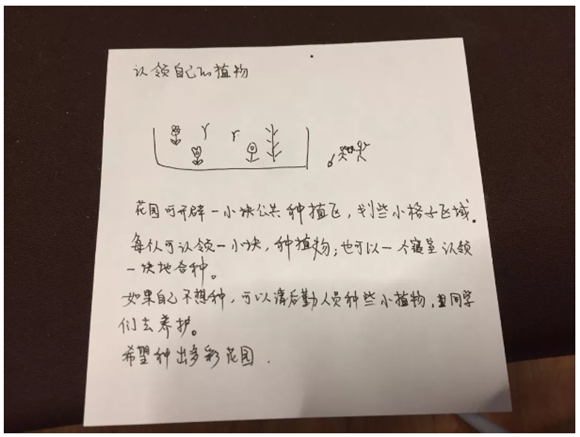 认领自己的植物
花园可开辟一小块公共种植区，划些小格子区域。
每人可认领一小块，种植物；也可以一个寝室认领
一块地合种。
如果自己不想种，可以请后勤人员种些小植物，由同学
们去养护。
希望种出多彩花园.